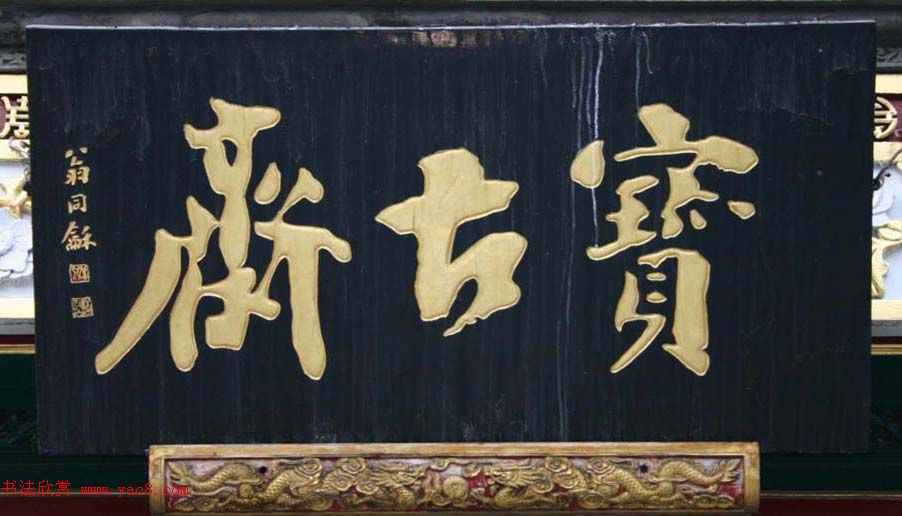 寶古齋
翁同龢
书法欣赏 www.yac8.com